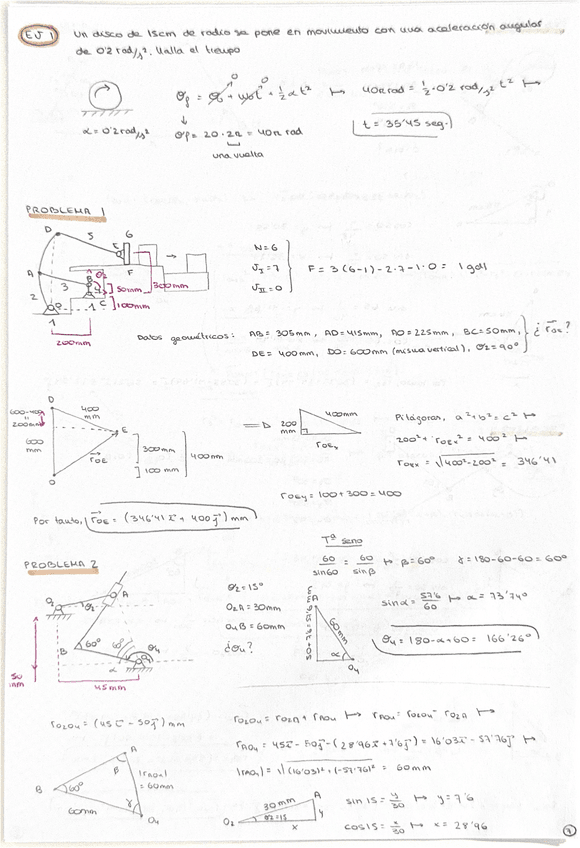 EJ 1 Un disco de 15cm de radio se pone en movimiento con una aceleración angular
de 0'2 rad/s². Halla el tiempo
θf = θ0 + ω0t + ½ α t² ↦ 40π rad = ½ · 0'2 rad/s² t² ↦
0 0
α = 0'2 rad/s²
θf = 20 · 2π = 40π rad
una vuelta
t = 35'45 seg.
PROBLEMA 1
D
5
6
E
A
B
3
F
2
O
1
C
50mm
300mm
100mm
200mm
N = 6
JI = 7
JII = 0
F = 3(6-1) - 2·7 - 1·0 = 1 gdl
Datos geométricos: AB = 305mm, AD = 415mm, AO = 225mm, BC = 50mm,
DE = 400mm, DO = 600mm (misma vertical), θ2 = 90°
¿ rOE ?
D
400 mm
200mm
600 mm
E
rOE
O
300mm
100 mm
400mm
200 mm
400mm
rOEx
Pitágoras, a² + b² = c² ↦
200² + rOEx² = 400² ↦
rOEx = √400² - 200² = 346'41
rOEy = 100 + 300 = 400
Por tanto, rOE = (346'41 i + 400 j) mm
PROBLEMA 2
Tª seno
60/sin60 = 60/sinβ ↦ β = 60° γ = 180-60-60 = 60°
O2
θ2
A
B
60°
60°
θ4
α
O4
50 mm
45mm
θ2 = 15°
O2A = 30mm
O4B = 60mm
¿θ4?
A
50+7'6=57'6mm
60mm
α
O4
sinα = 57'6/60 ↦ α = 73'74°
θ4 = 180-α+60 = 166'26°
rO2O4 = (45 i - 50 j) mm
rO2O4 = rO2A + rAO4 ↦ rAO4 = rO2O4 - rO2A ↦
rAO4 = 45 i - 50 j - (28'96 i + 7'6 j) = 16'03 i - 57'76 j ↦
|rAO4| = √(16'03)² + (-57'76)² = 60mm
A
β
B
60°
|rAO4| = 60mm
60mm
γ
O4
30mm
A
y
O2
θ2=15
x
sin 15 = y/30 ↦ y = 7'6
cos 15 = x/30 ↦ x = 28'96